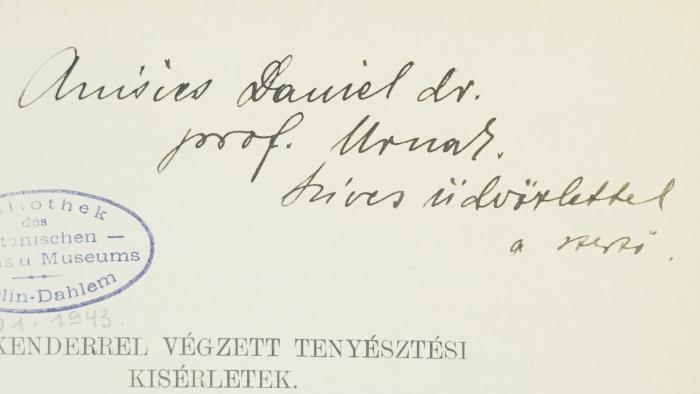 Anisics Daniel dr.
prof. Urnak.
szives üdvözlettel
a szerző.
bliothek
des
tonischen —
s u. Museums
rlin-Dahlem
1. 1943.
KENDERREL VÉGZETT TENYÉSZTÉSI
KISÉRLETEK.